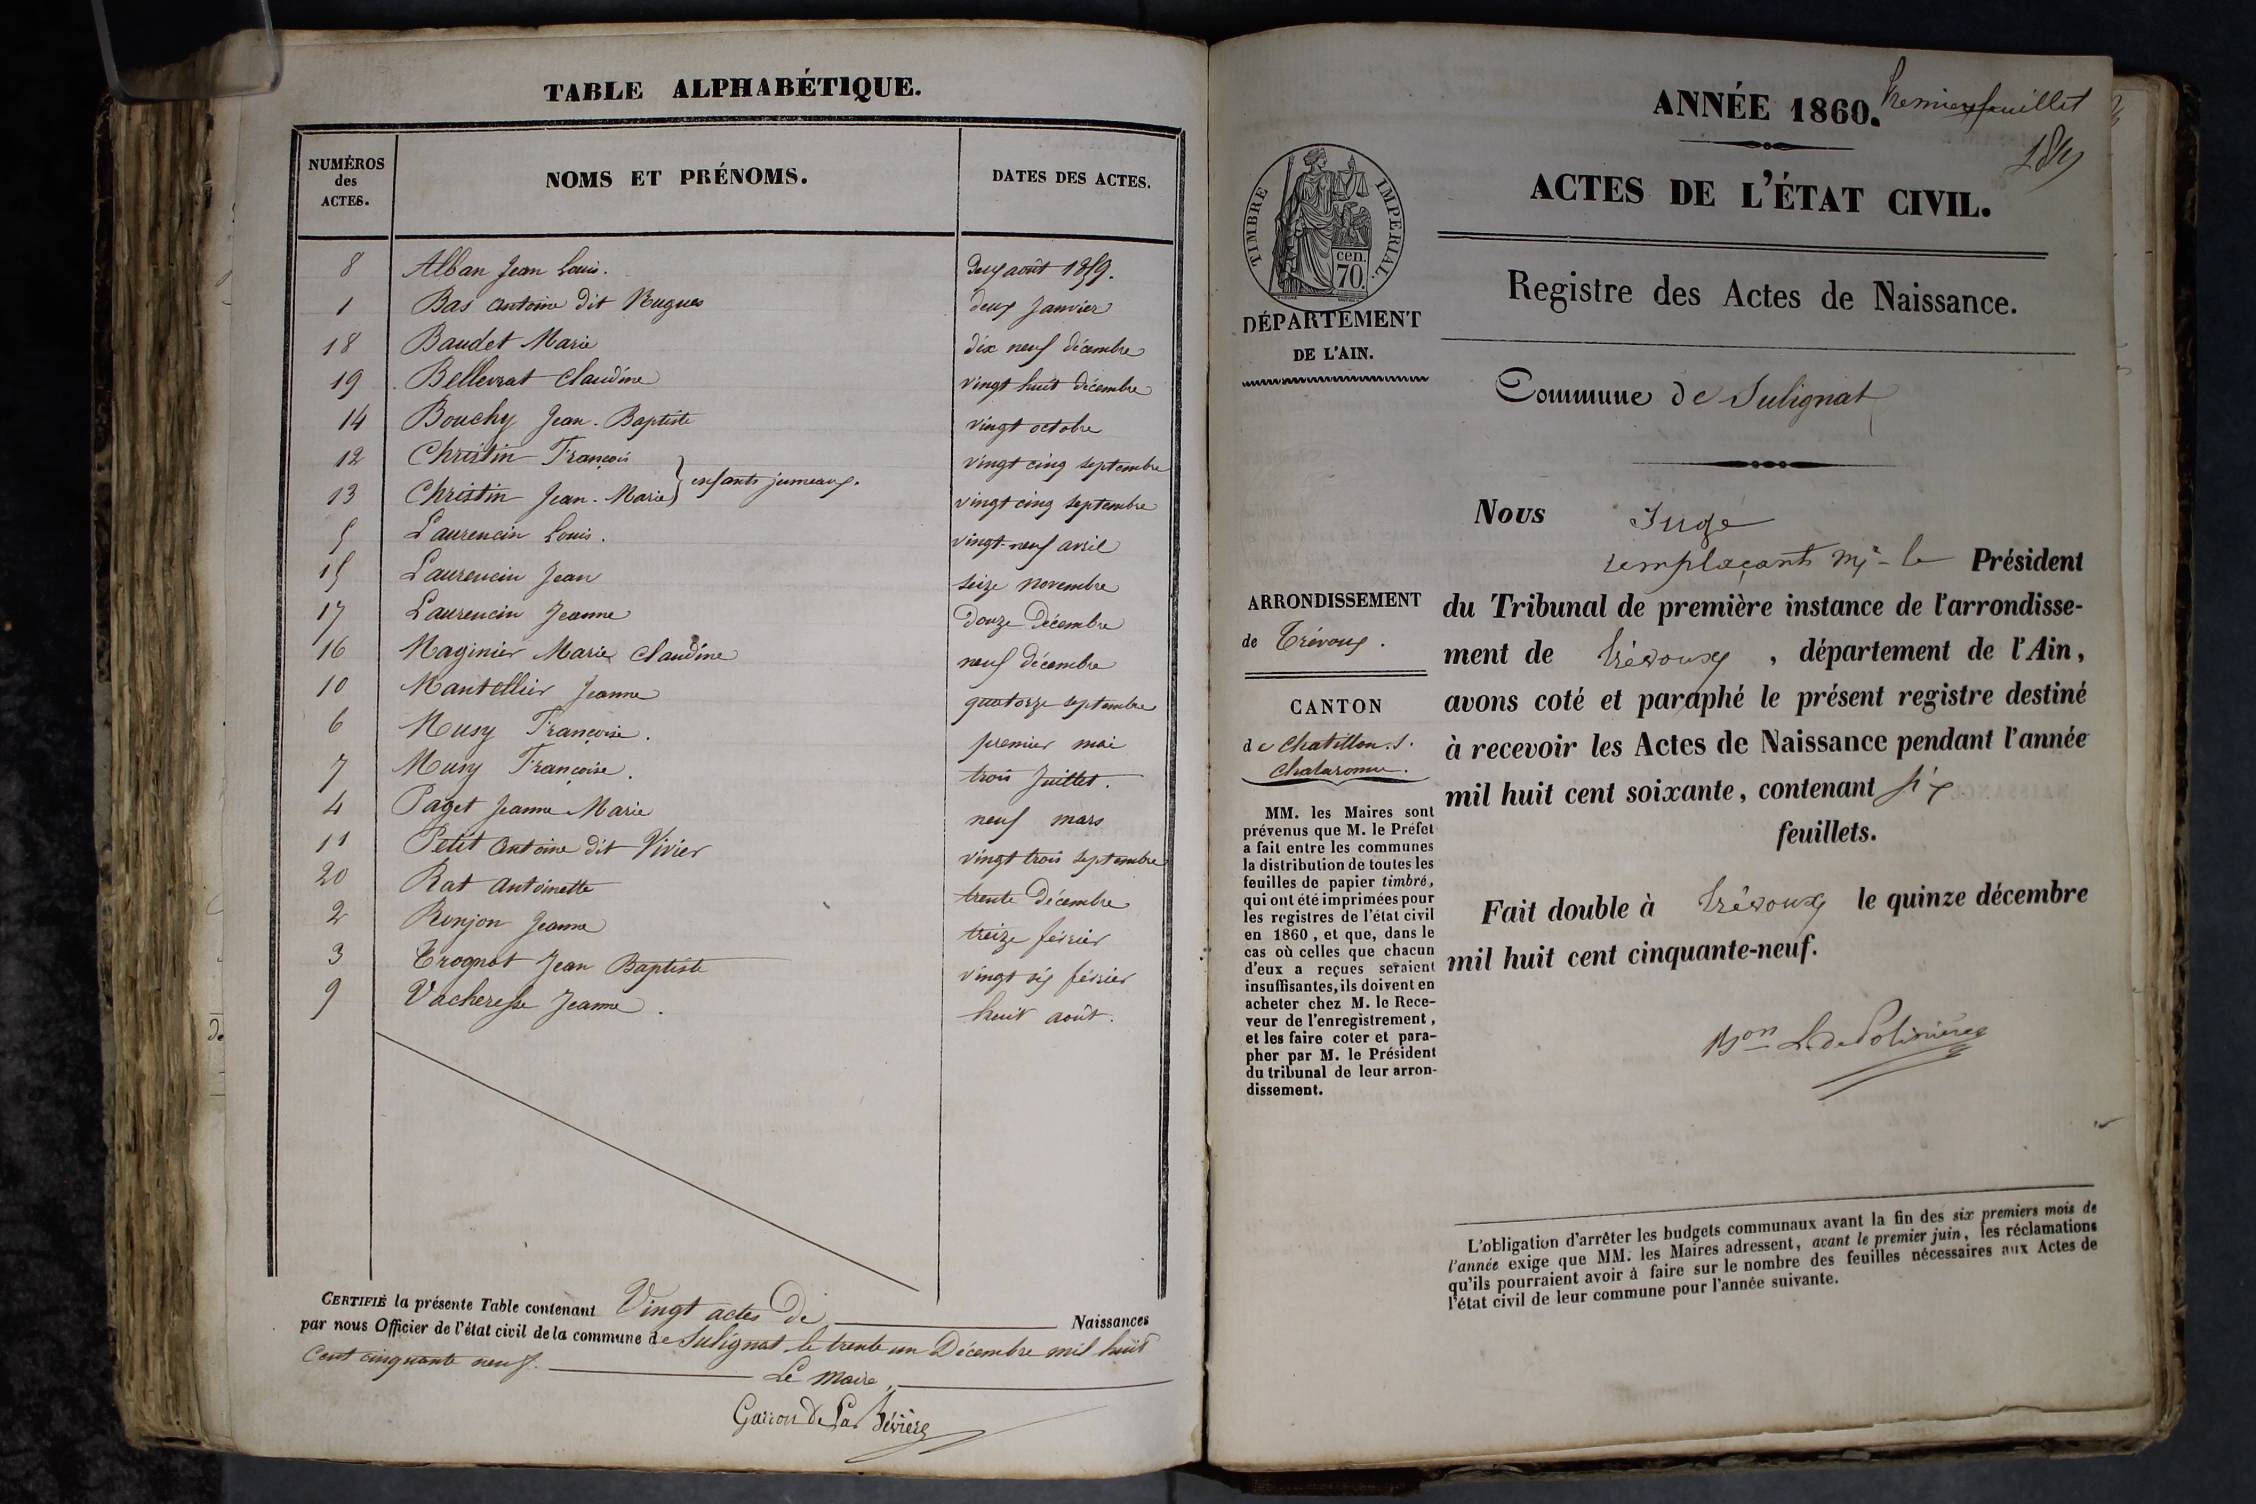 TABLE ALPHABÉTIQUE.
NUMÉROS des ACTES. NOMS ET PRÉNOMS. DATES DES ACTES.
8 Alban Jean Louis. deux août 1859.
1 Bas Antoine dit Hugues deux Janvier
18 Baudet Marie dix neuf décembre
19 Bellevrat Claudine vingt huit décembre
14 Bouchy Jean-Baptiste vingt octobre
12 Christin François vingt cinq septembre
13 Christin Jean-Marie } enfants jumeaux. vingt cinq septembre
5 Laurencin Louis. vingt-neuf avril
15 Laurencin Jean seize novembre
17 Laurencin Jeanne Douze Décembre
16 Maginier Marie Claudine neuf décembre
10 Mantellier Jeanne quatorze septembre
6 Musy Françoise. premier mai
7 Musy Françoise. trois Juillet.
4 Paget Jeanne Marie neuf mars
11 Petit Antoine dit Vivier vingt trois septembre
20 Rat Antoinette trente Décembre
2 Ronjon Jeanne treize février
3 Trognot Jean Baptiste vingt six février
9 Vacheresse Jeanne. huit août.
CERTIFIÉ la présente Table contenant Vingt actes De Naissances
par nous Officier de l'état civil de la commune de Sulignat le trente un Décembre mil huit
Cent cinquante neuf.
Le Maire,
Garron De La Bévière
ANNÉE 1860. Premier feuillet
ACTES DE L'ÉTAT CIVIL.
TIMBRE IMPÉRIAL.
cen.
70.
Registre des Actes de Naissance.
DÉPARTEMENT
DE L'AIN.
Commune de Sulignat
Nous Juge
remplaçant Mr le Président
du Tribunal de première instance de l'arrondisse-
ment de Trévoux, département de l'Ain,
avons coté et paraphé le présent registre destiné
à recevoir les Actes de Naissance pendant l'année
mil huit cent soixante, contenant six
feuillets.
Fait double à Trévoux le quinze décembre
mil huit cent cinquante-neuf.
Bon L. de Polinière
ARRONDISSEMENT
de Trévoux.
CANTON
de Chatillon s.
Chalaronne.
MM. les Maires sont
prévenus que M. le Préfet
a fait entre les communes
la distribution de toutes les
feuilles de papier timbré,
qui ont été imprimées pour
les registres de l'état civil
en 1860, et que, dans le
cas où celles que chacun
d'eux a reçues seraient
insuffisantes, ils doivent en
acheter chez M. le Rece-
veur de l'enregistrement,
et les faire coter et para-
pher par M. le Président
du tribunal de leur arron-
dissement.
L'obligation d'arrêter les budgets communaux avant la fin des six premiers mois de
l'année exige que MM. les Maires adressent, avant le premier juin, les réclamations
qu'ils pourraient avoir à faire sur le nombre des feuilles nécessaires aux Actes de
l'état civil de leur commune pour l'année suivante.